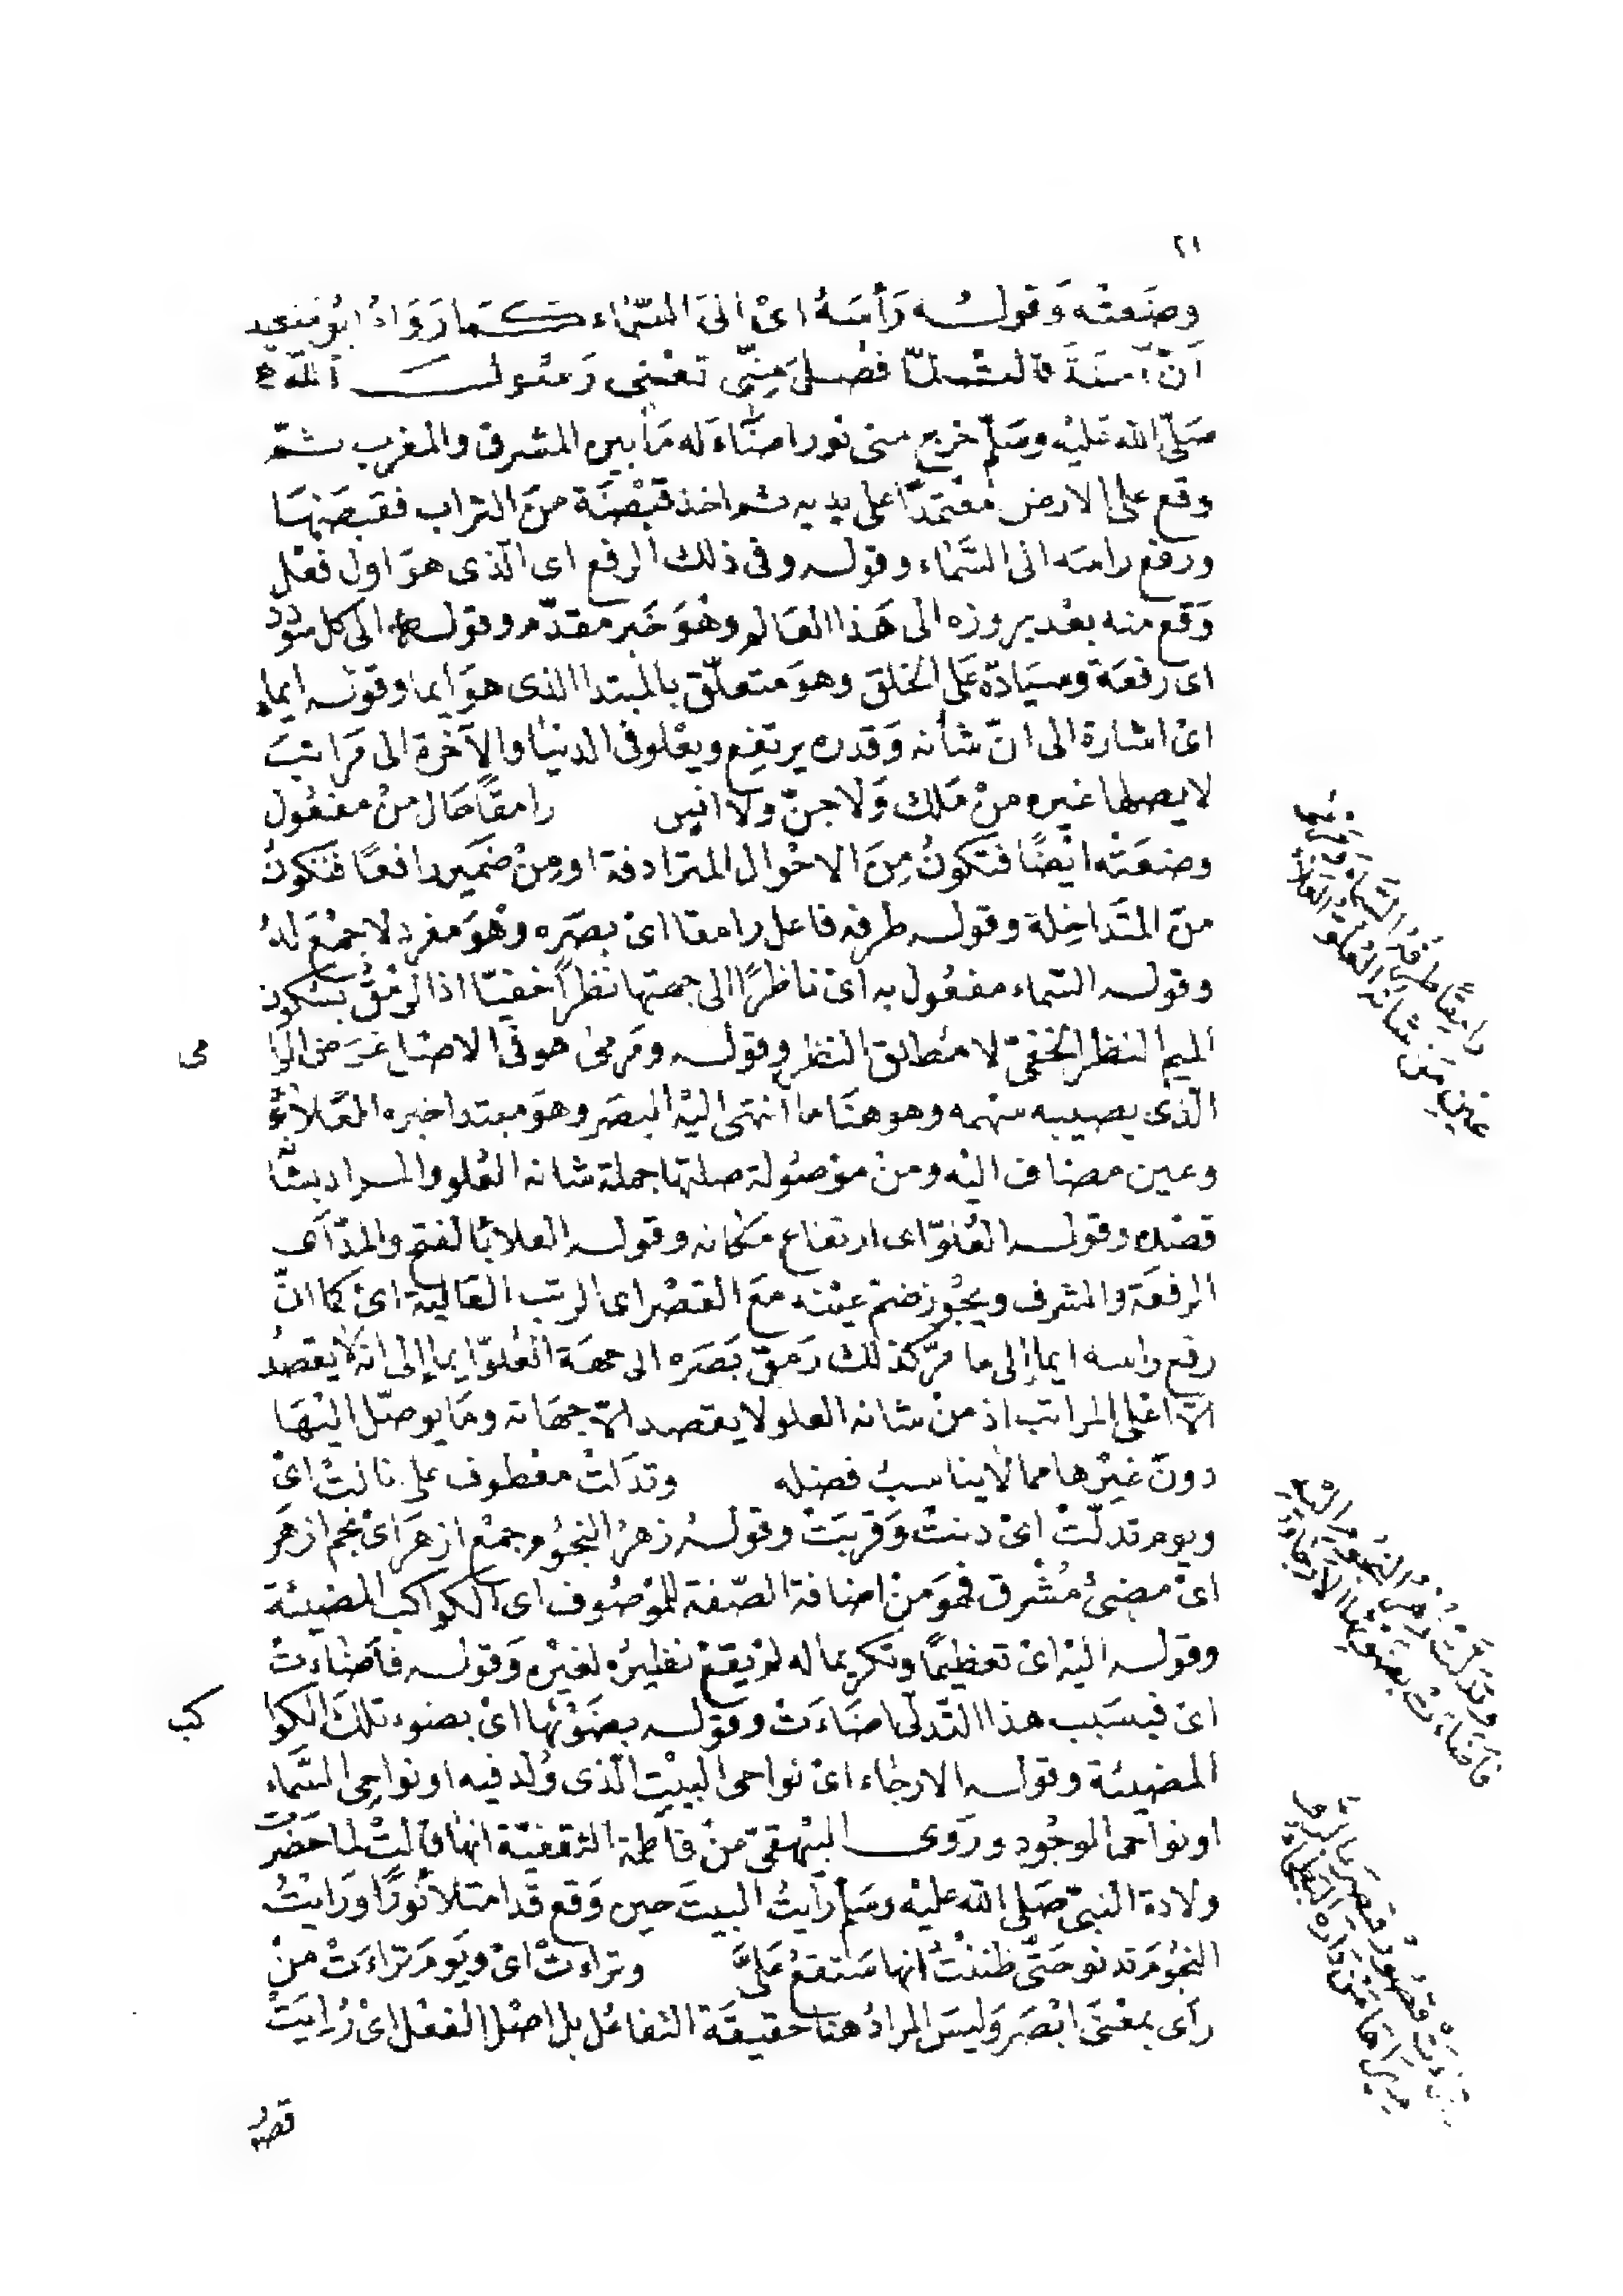 ٢١
وضعته وقوله رأسه اى الى السماء كما رواه ابو نعيم
ان آمنة قالت لما فصل منى تعنى رسول الله
صلى الله عليه وسلم خرج منى نور اضاء له ما بين المشرق والمغرب ثم
وقع على الارض معتمدا على يديه ثم اخذ قبضة من التراب فقبضها
ورفع راسه الى السماء وقوله وفى ذلك الرفع اى الذى هو اول فعل
وقع منه بعد بروزه الى هذا العالم وهو خبر مقدم وقوله الى كل سودد
اى رفعة وسيادة على الخلق وهو متعلق بالمبتدا الذى هو ايما وقوله ايماء
اى اشارة الى ان شأنه وقدره يرتفع ويعلو فى الدنيا والآخرة الى مراتب
لا يصلها غيره من ملك ولا جن ولا انس رامقا حال من مفعول
وضعته ايضا فتكون من الاحوال المترادفة او من ضمير رافعا فتكون
من المتداخلة وقوله طرفه فاعل رامقا اى بصره وهو مفرد لا جمع له
وقوله السماء مفعول به اى ناظرا الى جهتها نظرا خفيا اذ الرمق بسكون
الميم النظر الخفى لا مطلق النظر وقوله ومرمى هو فى الاصل غرض الرا
مى
الذى يصيبه سهمه وهو هنا ما انتهى اليه البصر وهو مبتدا خبره العلاء
وعين مضاف اليه ومن موصولة صلتها جملة شانه العلو والمراد بشا
قصده وقوله العلو اى ارتفاع مكانه وقوله العلا بالفتح والمد اى
الرفعة والشرف ويجوز ضم عينه مع القصر اى الرتب العالية اى كما ان
رفع راسه ايما الى ما مر كذلك رمق بصره الى جهة العلو ايما الى انه لا يقصد
الا اعلى المراتب اذ من شانه العلو لا يقصد الا جهاته وما يوصل اليها
دون غيرها مما لا يناسب فضله وتدلت معطوف على نالت اى
ويوم تدلت اى دنت وقربت وقوله زهر النجوم جمع ازهر اى نجم ازهر
اى مضئ مشرق فهو من اضافة الصفة للموصوف اى الكواكب المضيئة
وقوله اليه اى تعظيما وتكريما له لم يقع نظيره لغيره وقوله فأضاءت
اى فبسبب هذا التدلى اضاءت وقوله بضوئها اى بضوء تلك الكوا
كب
المضيئة وقوله الارجاء اى نواحى البيت الذى ولد فيه او نواحى السماء
او نواحى الوجود وروى البيهقى عن فاطمة الثقفية انها قالت لما حضرت
ولادة النبى صلى الله عليه وسلم رايت البيت حين وقع قد امتلأ نورا ورايت
النجوم تدنو حتى ظننت انها ستقع على وتراءت اى ويوم تراءت من
رأى بمعنى ابصر وليس المراد هنا حقيقة التفاعل بل اصل الفعل اى رايت
قصور
رامقا طرفه السماء ومرمى
عين من شانه العلو العلاء
وتدلت زهر النجوم اليه
فأضاءت بضوئها الارجاء
وتراءت قصور قيصر بالروم
يراها من داره البطحاء